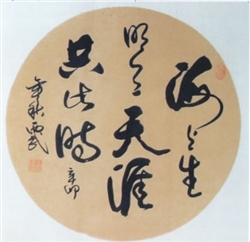 海上生
明月天涯
共此時
辛卯
年秋